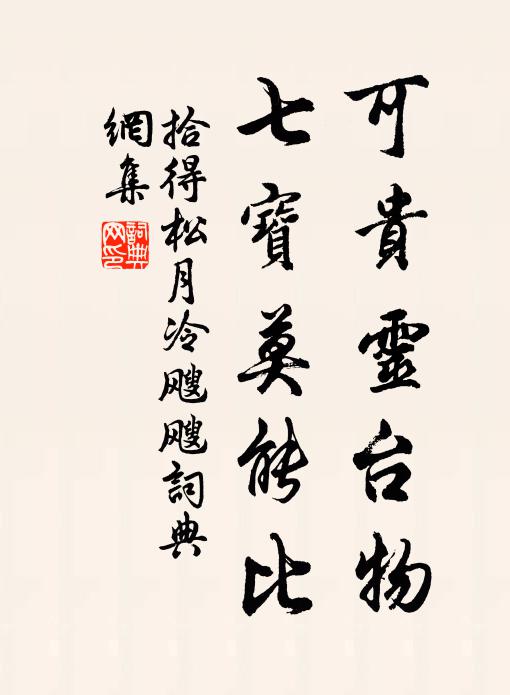 可貴靈台物
七寶莫能比
拾得松月冷飕飕詞典
網集
詞典
网印